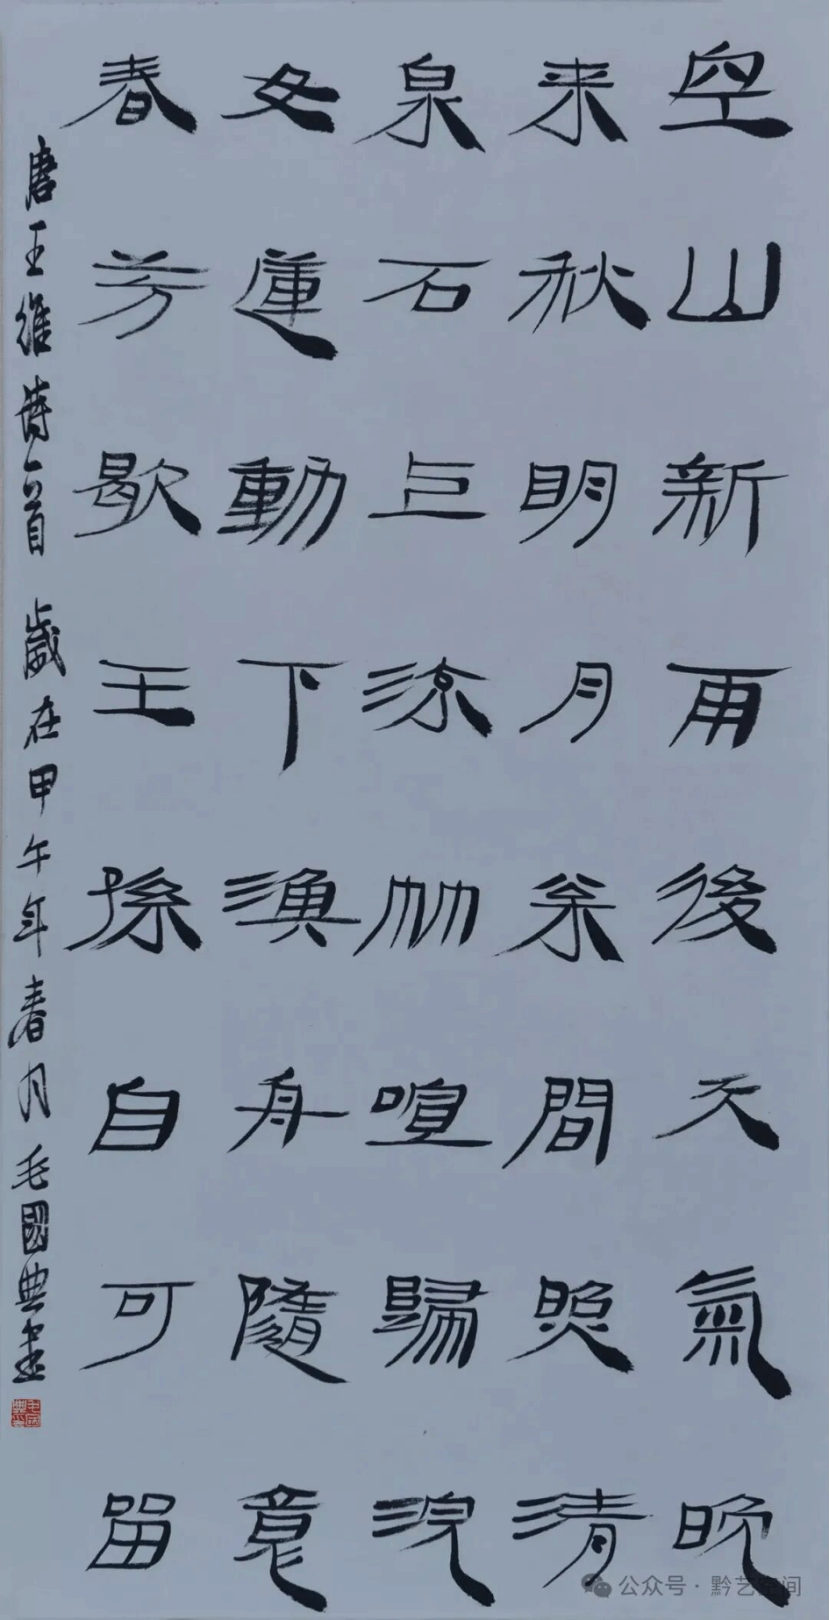 空山新雨後天氣晚
来秋明月松間照清
泉石上流竹喧歸浣
女蓮動下漁舟隨意
春芳歇王孫自可留
唐王維詩一首 歲在甲午年春月毛國典書
公众号 · 黔艺空间